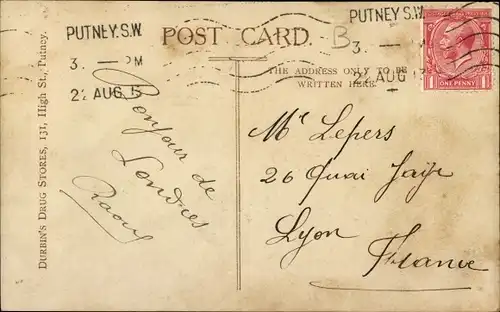 PUTNEY.S.W
3. — PM
22 AUG. 15
POST CARD.
THE ADDRESS ONLY TO BE
WRITTEN HERE.
PUTNEY.S.W
3. —
22 AUG
ONE PENNY
B
DURBIN'S DRUG STORES, 131, High St., Putney.
Bonjour de
Londres
Raoul
Mr Lepers
26 Quai Jaÿr
Lyon
France